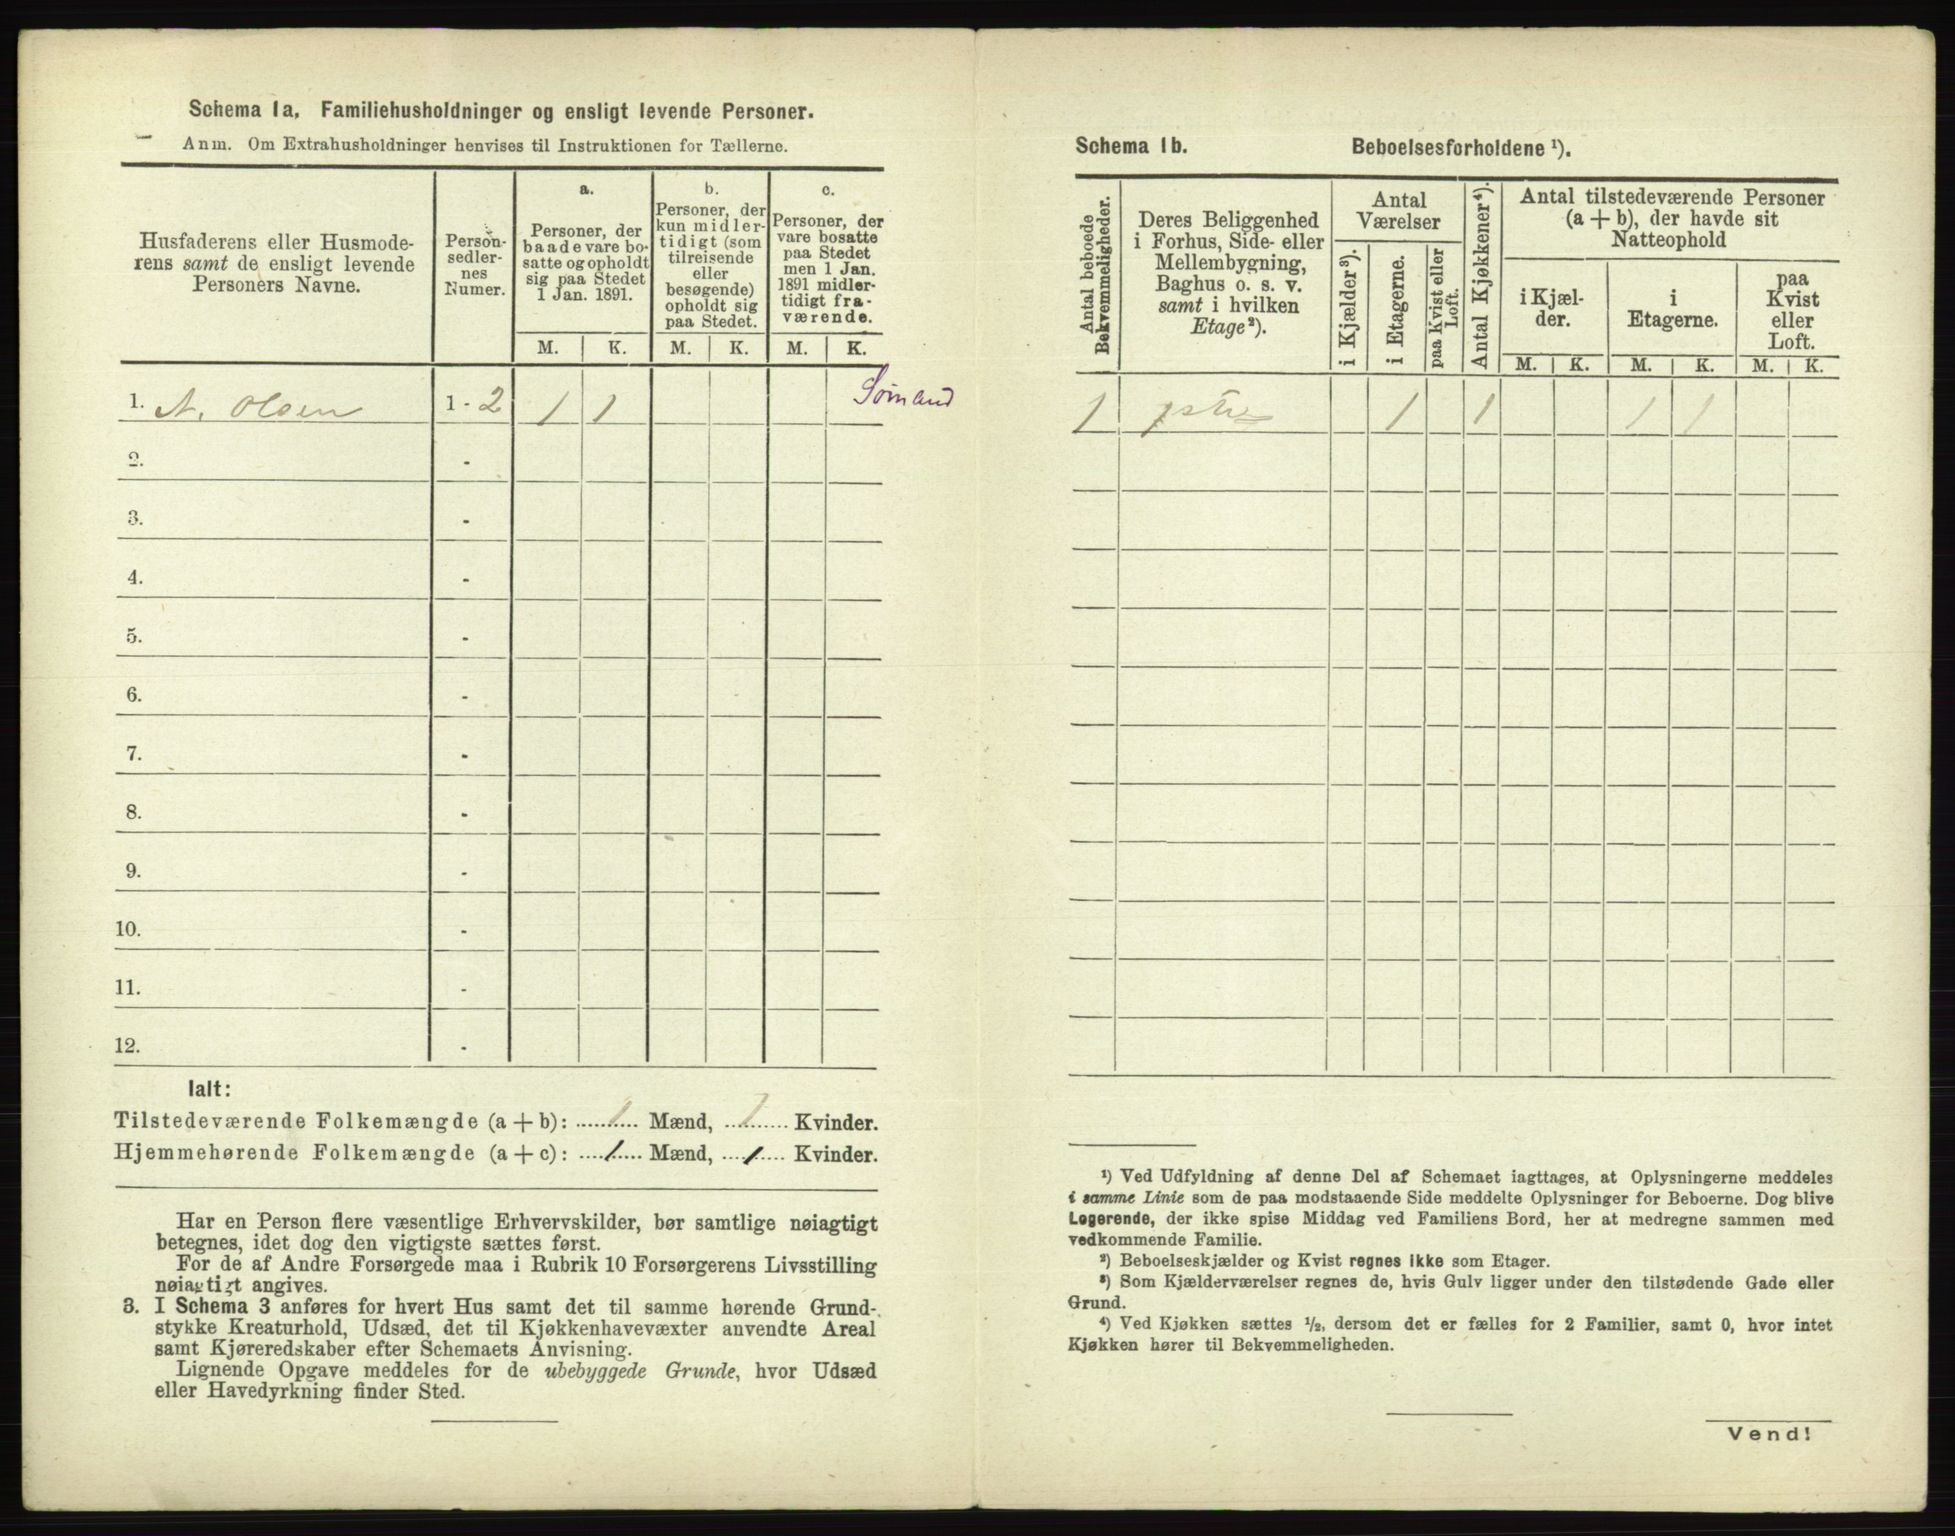 Schema 1a, Familiehusholdninger og ensligt levende Personer.
Anm. Om Extrahusholdninger henvises til Instruktionen for Tællerne.
Husfaderens eller Husmode-
rens samt de ensligt levende
Personers Navne.
Person-
sedler-
nes
Numer.
a.
Personer, der
baade vare bo-
satte og opholdt
sig paa Stedet
1 Jan. 1891.
b.
Personer, der
kun midler-
tidigt (som
tilreisende
eller
besøgende)
opholdt sig
paa Stedet.
c.
Personer, der
vare bosatte
paa Stedet
men 1 Jan.
1891 midler-
tidigt fra-
værende.
M. K. M. K. M. K.
1. N. Olsen 1 - 2 1 1 Sømand
2. -
3. -
4. -
5. -
6. -
7. -
8. -
9. -
10. -
11. -
12. -
Ialt:
Tilstedeværende Folkemængde (a + b): 1 Mænd, 1 Kvinder.
Hjemmehørende Folkemængde (a + c): 1 Mænd, 1 Kvinder.
Har en Person flere væsentlige Erhvervskilder, bør samtlige nøiagtigt
betegnes, idet dog den vigtigste sættes først.
For de af Andre Forsørgede maa i Rubrik 10 Forsørgerens Livsstilling
nøiagtigt angives.
3. I Schema 3 anføres for hvert Hus samt det til samme hørende Grund-
stykke Kreaturhold, Udsæd, det til Kjøkkenhavevæxter anvendte Areal
samt Kjøreredskaber efter Schemaets Anvisning.
Lignende Opgave meddeles for de ubebyggede Grunde, hvor Udsæd
eller Havedyrkning finder Sted.
Schema 1b. Beboelsesforholdene ¹).
Antal beboede
Bekvemmeligheder.
Deres Beliggenhed
i Forhus, Side- eller
Mellembygning,
Baghus o. s. v.
samt i hvilken
Etage ²).
Antal
Værelser
i Kjælder ³).
i Etagerne.
paa Kvist eller
Loft.
Antal Kjøkkener ⁴).
Antal tilstedeværende Personer
(a + b), der havde sit
Natteophold
i Kjæl-
der.
i
Etagerne.
paa
Kvist
eller
Loft.
M. K. M. K. M. K.
1 1 1 1 1
¹) Ved Udfyldning af denne Del af Schemaet iagttages, at Oplysningerne meddeles
i samme Linie som de paa modstaaende Side meddelte Oplysninger for Beboerne. Dog blive
Logerende, der ikke spise Middag ved Familiens Bord, her at medregne sammen med
vedkommende Familie.
²) Beboelseskjælder og Kvist regnes ikke som Etager.
³) Som Kjælderværelser regnes de, hvis Gulv ligger under den tilstødende Gade eller
Grund.
⁴) Ved Kjøkken sættes ½, dersom det er fælles for 2 Familier, samt 0, hvor intet
Kjøkken hører til Bekvemmeligheden.
Vend!